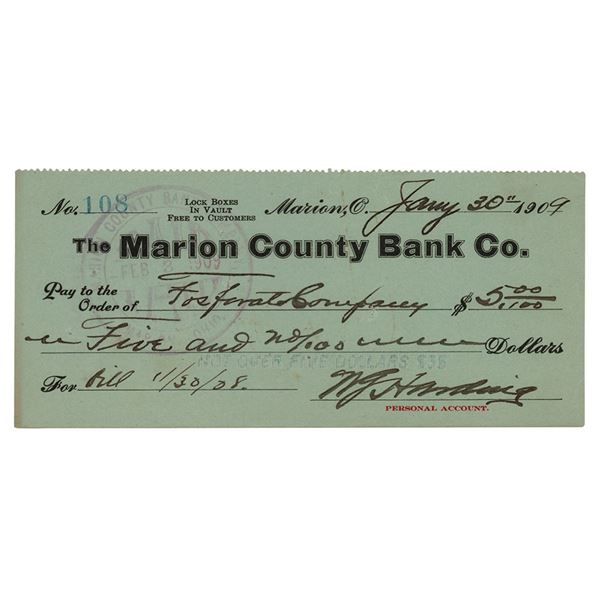 No. 108
LOCK BOXES
IN VAULT
FREE TO CUSTOMERS
Marion, O. Jany 30" 1909
The Marion County Bank Co.
Pay to the
Order of Fosforato Company $5.00/100
Five and no/100 Dollars
NOT OVER FIVE DOLLARS $5$
For bill 11/30/08.
WG Harding
PERSONAL ACCOUNT.
COUNTY BANK
FEB 2 1909